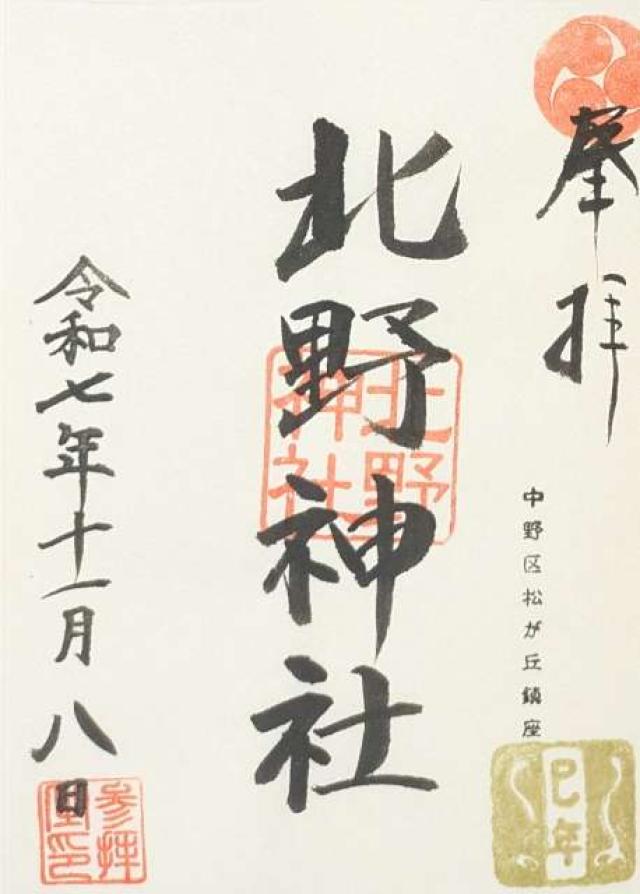 奉拝
中野区松が丘鎮座
巳年
北野神社
北野神社
令和七年十一月八日
参拝